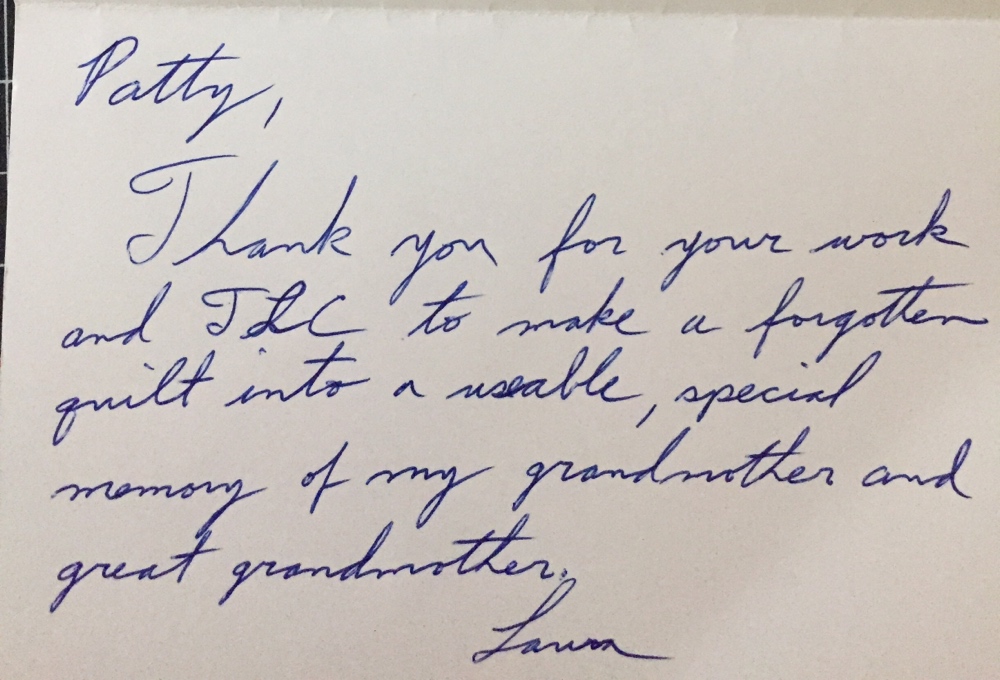 Patty,
Thank you for your work
and TLC to make a forgotten
quilt into a useable, special
memory of my grandmother and
great grandmother.
Laura